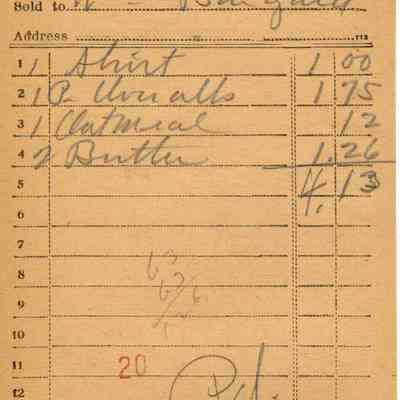 Sold to
Address
1 1 Shirt 1 00
2 1 P. Overalls 1 75
3 1 Oatmeal 12
4 2 Butter 1.26
5 4.13
6
7
8
9
10
11 20
12